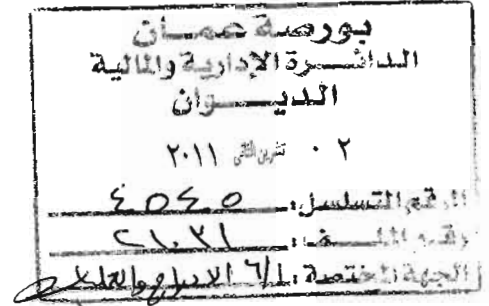 بورصة عمان
الدائرة الإدارية والمالية
الديوان
٠٢ تشرين الثاني ٢٠١١
الرقم التسلسل: ٤٥٤٥
رقم الملف: ٢١٠٣١
الجهة المختصة: ٦/١ الادراج والعمليات